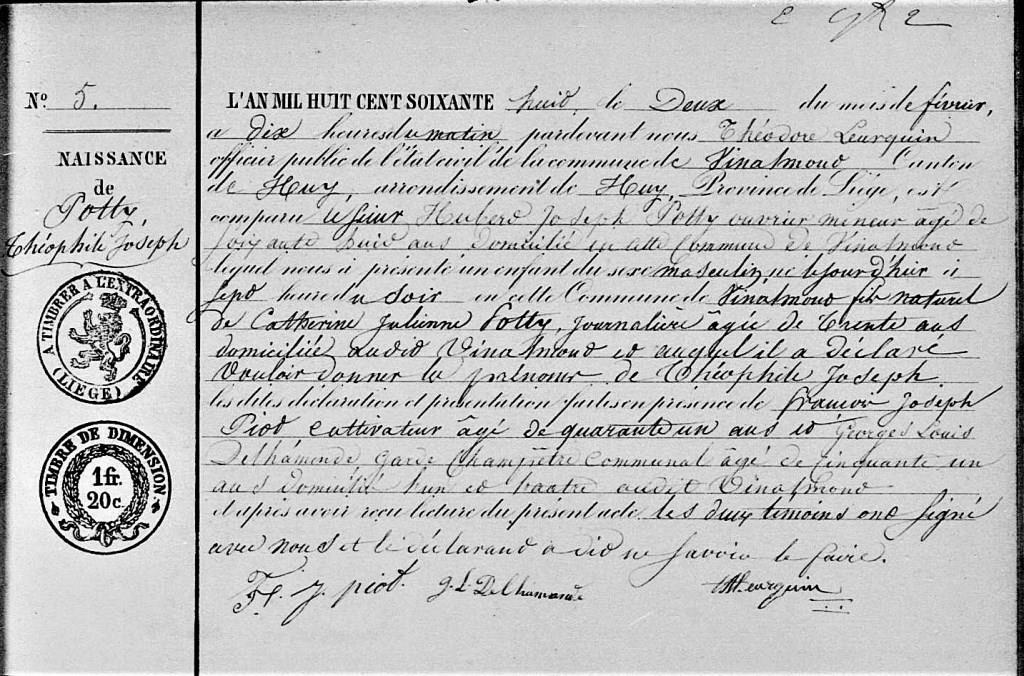 Nº 5.
NAISSANCE
de
Potty,
Théophile Joseph
A TIMBRER A L'EXTRAORDINAIRE
(LIEGE)
TIMBRE DE DIMENSION
1 fr.
20 c.
L'AN MIL HUIT CENT SOIXANTE huit, le Deux du mois de février,
a dix heures du matin pardevant nous Théodore Leurquin
officier public de l'état civil de la commune de Vinalmont Canton
de Huy, arrondissement de Huy, Province de Liége, est
comparu le sieur Hubert Joseph Potty ouvrier mineur âgé de
soixante huit ans domicilié en cette Commune de Vinalmont
lequel nous a présenté un enfant du sexe masculin, né
sept heures du soir en cette Commune de Vinalmont fils naturel
de Catherine Julienne Potty, journalière âgée de trente ans
domiciliée audit Vinalmont et auquel il a déclaré
vouloir donner les prénoms de Théophile Joseph.
les dites déclaration et présentation faites en présence de François Joseph
Piot cultivateur âgé de quarante un ans et Georges Louis
Delhamende garde Champêtre communal âgé de cinquante un
ans domicilié l'un et l'autre audit Vinalmont
et après avoir reçu lecture du présent acte, les deux témoins ont signé
avec nous et le déclarant a dit ne savoir le faire.
F. J. piot. g. L. Delhamende Th Leurquin